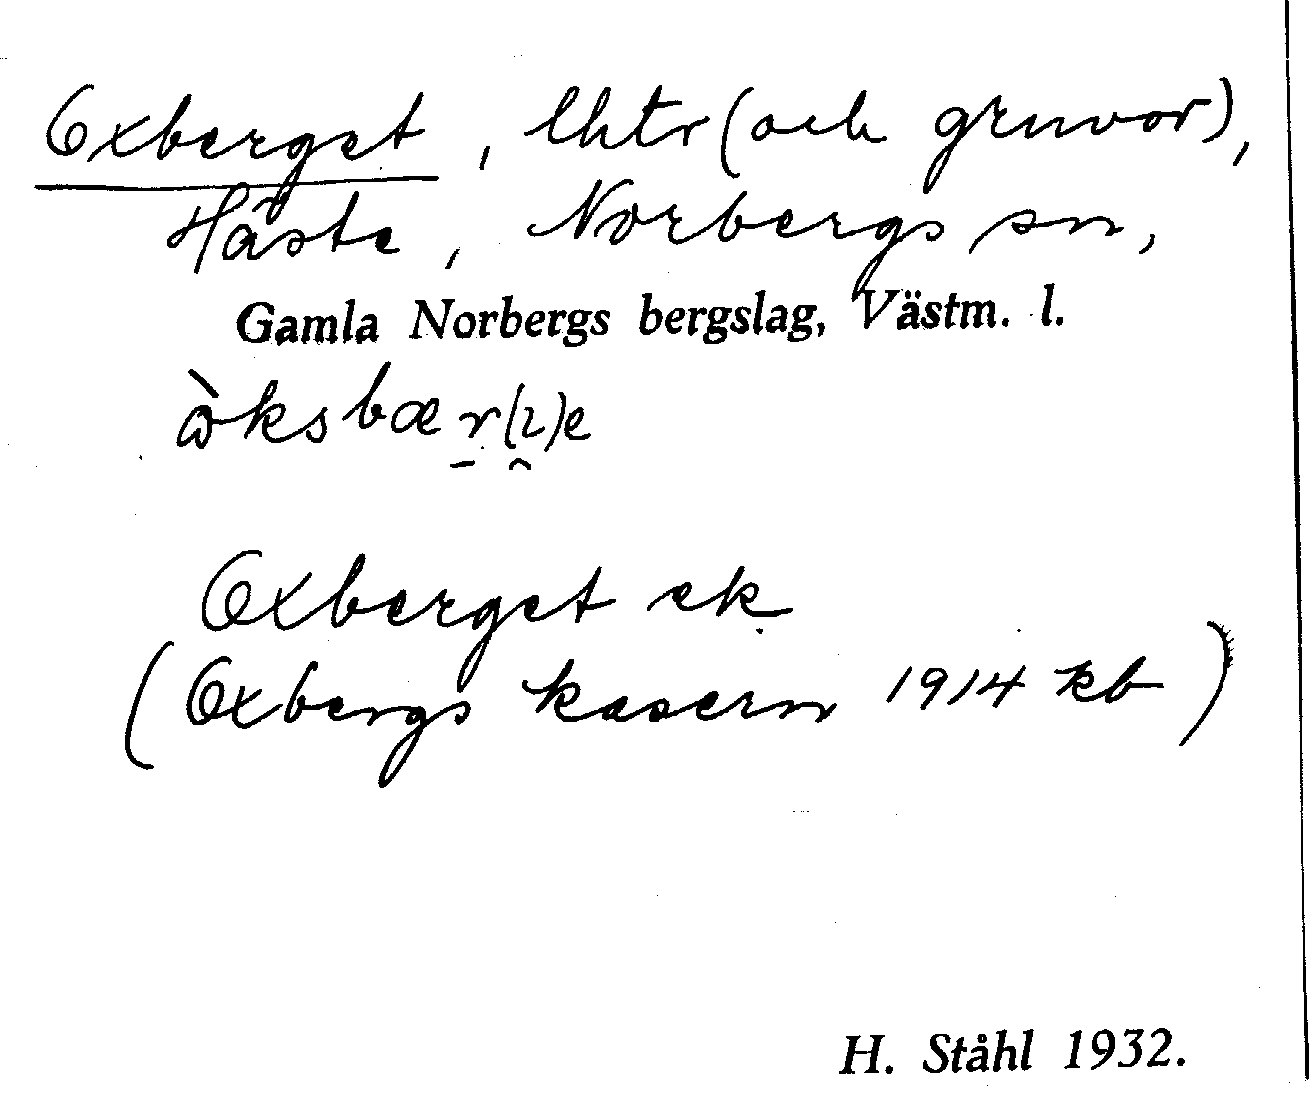 Oxberget, lhtr (och gruvor),
Håste, Norbergs sn,
Gamla Norbergs bergslag, Västm. l.
ὼksbær̠(ɩ̯)e
Oxberget ek
(Oxbergs kasern 1914 kb)
H. Ståhl 1932.